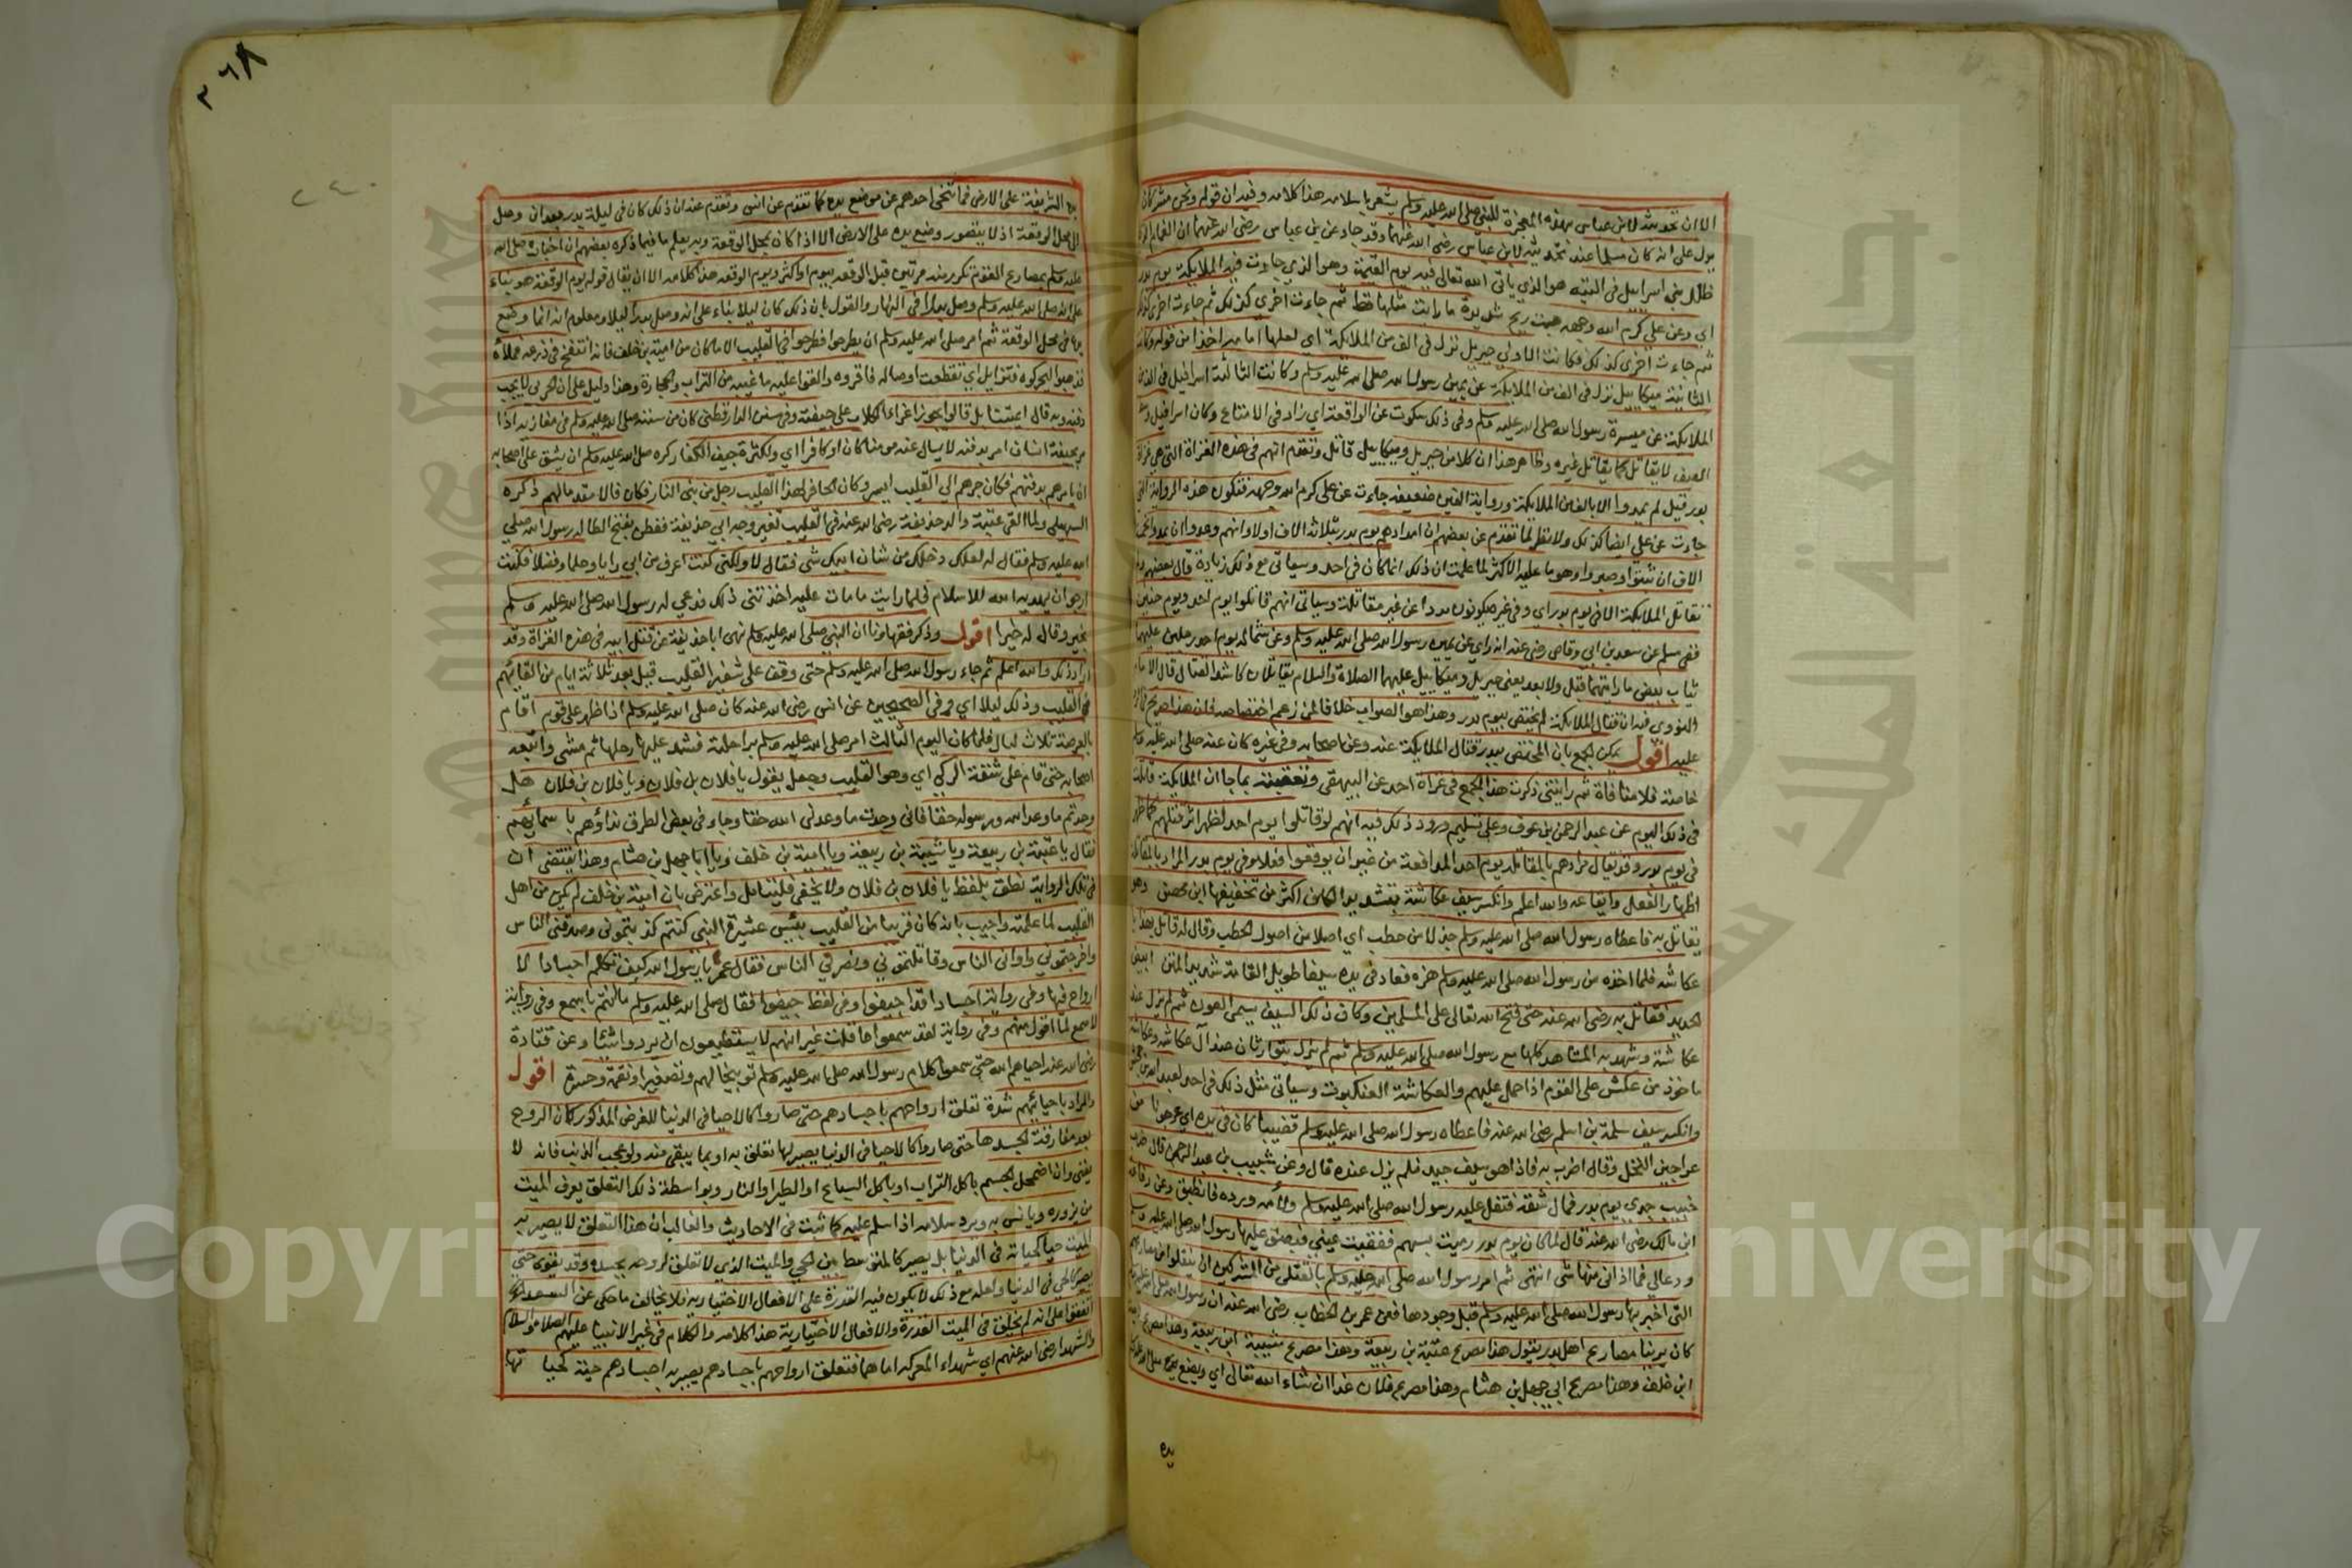 الا ان تحديثه لابن عباس بهذه المعجزة للنبي صلى الله عليه وسلم يشعر باسلامه هذا كلامه وفيه ان قوله ونحن مشركان
يدل على انه كان مسلما عند تحديثه لابن عباس رضي الله عنهما وقد جاء عن بن عباس رضي الله عنهما ان الغمام الذي
ظلل بني اسراييل في التيه هو الذي ياتي الله تعالى فيه يوم القيمة وهو الذي جاءت فيه الملايكة يوم بدر
اي وعن علي كرم الله وجهه هبت ريح شديدة ما رايت مثلها قط ثم جاءت اخري كذلك ثم جاءت اخري كذلك
ثم جاءت اخري كذلك فكانت الاولي جبريل نزل في الف من الملايكة اي لعلها امامه اخذا من قوله وكانت
الثانية ميكاييل نزل في الف من الملايكة عن يمين رسول الله صلى الله عليه وسلم وكانت الثالثة اسرافيل في الف من
الملايكة عن ميسرة رسول الله صلى الله عليه وسلم وفي ذلك سكوت عن الرابعة اي زاد في الامتاع وكان اسرافيل وسط
الصف لا يقاتل كما يقاتل غيره وظاهر هذا ان كلا من جبريل وميكاييل قاتل وتقدم انهم في هذه الغزاة التي هي غزاة
بدر قيل لم يمدوا الا بالف من الملايكة ورواية الفين ضعيفه جاءت عن علي كرم الله وجهه فتكون هذه الرواية التي
جاءت عن علي ايضا كذلك ولا نظر لما تقدم عن بعضهم ان امدادهم يوم بدر بثلاثة الاف اولا وانهم وعدوا ان يمدوا بخمسة
الاف ان ثبتوا وصبروا وهو ما عليه الاكثر لما علمت ان ذلك انما كان في احد وسياتي مع ذلك زيادة قال بعضهم ولم
تقاتل الملايكة الا في يوم بدر اي وفي غيره يكونون مددا من غير مقاتلة وسياتي انهم قاتلوا يوم احد ويوم حنين
ففي مسلم عن سعد بن ابي وقاص رضي عنه انه راي عن يمين رسول الله صلى الله عليه وسلم وعن شماله يوم احد رجلين عليهما
ثياب بيض ما رايتهما قبل ولا بعد يعني جبريل وميكاييل عليهما الصلاة والسلام يقاتلان كاشد القتال قال الامام
النووي فيه ان قتال الملايكة لم يختص بيوم بدر وهذا هو الصواب خلافا لمن زعم اختصاصه فان هذا صريح في الرد
عليه اقول يمكن الجمع بان المختص ببدر قتال الملايكة عنه وعن اصحابه وفي غيره كان عنه صلى الله عليه وسلم
خاصة فلا منافاة ثم رايتني ذكرت هذا الجمع في غزاة احد عن البيهقي وتعقبته بما جا ان الملايكة قاتلت
في ذلك اليوم عن عبد الرحمن بن عوف وعلي تسليم ورود ذلك فيه انهم لو قاتلوا يوم احد لظهر اثر قتلهم كما ظهر
في يوم بدر وقد يقال مرادهم بالمقاتله يوم احد المدافعة من غير ان يوقعوا فعلا وفي يوم بدر المراد بالمقاتلة
اظهار الفعل وايقاعه والله اعلم وانكسر سيف عكاشة بتشديد الكاف اكثر من تخفيفها ابن محصن وهو
يقاتل به فاعطاه رسول الله صلى الله عليه وسلم جذلا من حطب اي اصلا من اصول الحطب وقال له قاتل بهذا يا
عكاشه فلما اخذه من رسول الله صلى الله عليه وسلم هزه فعاد في يده سيفا طويل القامة شديد المتن ابيض
الحديد فقاتل به رضي الله عنه حتى فتح الله تعالى على المسلمين وكان ذلك السيف يسمي العون ثم لم يزل عند
عكاشة وشهد به المشاهد كلها مع رسول الله صلى الله عليه وسلم ثم لم يزل متوارثا عند آل عكاشه وعكاشة
ماخوذ من عكش على القوم اذا حمل عليهم والعكاشة العنكبوت وسياتي مثل ذلك في احد لعبد الله بن جحش
وانكسر سيف سلمة بن اسلم رضي الله عنه فاعطاه رسول الله صلى الله عليه وسلم قضيبا كان في يده اي عرجونا من
عراجين النخل وقال اضرب به فاذا هو سيف جيد فلم يزل عنده قال وعن خبيب بن عبد الرحمن قال ضرب
خبيب جدي يوم بدر فمال شقه فتفل عليه رسول الله صلى الله عليه وسلم ولأمه ورده فانطبق وعن رفاعة
ابن مالك رضي الله عنه قال لما كان يوم بدر رميت بسهم ففقيت عيني فبصق عليها رسول الله صلى الله عليه وسلم
ودعالي فما اذاني منها شي انتهى ثم امر رسول الله صلى الله عليه وسلم بالقتلى من المشركين ان ينقلوا من مصارعهم
التي اخبر بها رسول الله صلى الله عليه وسلم قبل وجودها فعن عمر بن الخطاب رضي الله عنه ان رسول الله صلى الله عليه وسلم
كان يرينا مصارع اهل بدر يقول هذا مصرع عتبة بن ربيعة وهذا مصرع شيبة ابن ربيعة وهذا مصرع امية
ابن خلف وهذا مصرع ابي جهل بن هشام وهذا مصرع فلان غدا ان شاء الله تعالى اي ويضع يده
يده
٢٦٨
٢٤٠
يده الشريفة على الارض فما تنحي احدهم عن موضع يده كما تقدم عن انس وتقدم عنه ان ذلك كان في ليلة بدر بعد ان وصل
الى محل الوقعة اذ لا يتصور وضع يده على الارض الا اذا كان بمحل الوقعة وبه يعلم ما فيما ذكره بعضهم ان اخباره صلى الله
عليه وسلم بمصارع القوم تكرر منه مرتين قبل الوقعه بيوم او اكثر ويوم الوقعه هذا كلامه الا ان يقال قوله يوم الوقعة هو بناء
على انه صلى الله عليه وسلم وصل بدرا في النهار والقول بان ذلك كان ليلا بناء على انه وصل بدرا ليلا ومعلوم انه انما وضع
يده في محل الوقعة ثم امر صلى الله عليه وسلم ان يطرحوا فطرحوا في القليب الا ما كان من امية بن خلف فانه انتفخ في درعه فملأه
فذهبوا ليحركوه فتزايل اي تقطعت اوصاله فاقروه والقوا عليه ما غيبه من التراب والحجارة وهذا دليل على ان الحربي لا يجب
دفنه وبه قال ايمتنا بل قالوا يجوز اغراء الكلاب على جيفته وفي سنن الدارقطني كان من سننه صلى الله عليه وسلم في مغازيه اذا
مر بجيفة انسان امر بدفنه لا يسال عنه مومنا كان او كافرا اي ولكثرة جيف الكفار كره صلى الله عليه وسلم ان يشق على اصحابه
ان يامرهم بدفنهم فكان جرهم الى القليب ايسر وكان الحافر لهذا القليب رجل من بني النار فكان فالا مقدما لهم ذكره
السهيلي ولما القي عتبة والد حذيفة رضي الله عنه في القليب تغير وجه ابي حذيفة ففطن بفتح الطا له رسول الله صلى
الله عليه وسلم فقال له لعلك دخلك من شان ابيك شي فقال لا ولكني كنت اعرف من ابي رايا وحلما وفضلا فكنت
ارجو ان يهديه الله للاسلام فلما رايت ما مات عليه احزنني ذلك فدعي له رسول الله صلى الله عليه وسلم
بخير وقال له خيرا اقول وذكر فقهاونا ان النبي صلى الله عليه وسلم نهى ابا حذيفة عن قتل ابيه في هذه الغزاة وقد
اراد ذلك والله اعلم ثم جاء رسول الله صلى الله عليه وسلم حتى وقف على شفير القليب قيل بعد ثلاثة ايام من القائهم
في القليب وذلك ليلا اي فـفي الصحيحين عن انس رضي الله عنه كان صلى الله عليه وسلم اذا ظهر على قوم اقام
بالعرصة ثلاث ليال فلما كان اليوم الثالث امر صلى الله عليه وسلم براحلته فشد عليها رحلها ثم مشى واتبعه
اصحابه حتى قام على شفة الركي اي وهو القليب وجعل يقول يا فلان بن فلان ويا فلان بن فلان هل
وجدتم ما وعد الله ورسوله حقا فاني وجدت ما وعدني الله حقا وجاء في بعض الطرق نداؤهم باسمايهم
فقال يا عتبة بن ربيعة ويا شيبة بن ربيعة ويا امية بن خلف ويا ابا جهل بن هشام وهذا يقتضي ان
في تلك الرواية نطق بلفظ يا فلان بن فلان ولا يخفي فليتامل واعترض بان امية بن خلف لم يكن من اهل
القليب لما علمت واجيب بانه كان قريبا من القليب بئس عشيرة النبي كنتم كذبتموني وصدقني الناس
واخرجتموني واواني الناس وقاتلتموني ونصرني الناس فقال عمر يا رسول الله كيف تكلم اجسادا لا
ارواح فيها وفي رواية اجسادا قد اجيفوا وفي لفظ جيفوا فقال صلى الله عليه وسلم ما انتم باسمع وفي رواية
لاسمع لما اقول منهم وفي رواية لقد سمعوا ما قلت غير انهم لا يستطيعون ان يردوا شيئا وعن قتادة
رضي الله عنه احياهم الله حتى سمعوا كلام رسول الله صلى الله عليه وسلم توبيخا لهم وتصغيرا ونقمة وحسرة اقول
والمراد باحيائهم شدة تعلق ارواحهم باجسادهم حتى صاروا كالاحيا في الدنيا للغرض المذكور لان الروح
بعد مفارقة لجسدها حتى صاروا كالاحيا في الدنيا يصير لها تعلق به او بما يبقى منه ولو عجب الذنب فانه لا
يفنى وان اضمحل الجسم باكل التراب او باكل السباع او الطير او النار وبواسطة ذلك التعلق يعرف الميت
من يزوره ويانس به ويرد سلامه اذا سلم عليه كما ثبت في الاحاديث والغالب ان هذا التعلق لا يصير به
الميت حيا كحياته في الدنيا بل يصير كالمتوسط بين الحي والميت الذي لا تعلق لروحه بجسده وقد يقوى حتى
يصير كالحي في الدنيا ولعله مع ذلك لا يكون فيه القدرة على الافعال الاختياريه فلا يخالف ما حكى عن السعد
اتفقوا على انه لم يخلق في الميت القدرة والافعال الاختيارية هذا كلامه والكلام في غير الانبيا عليهم الصلاة والسلام
والشهدا رضي الله عنهم اي شهداء المعركه اما هما فتعلق ارواحهم باجسادهم يصير به اجسادهم حية كحياتها
Copyright © King Saud University
جامعة الملك سعود